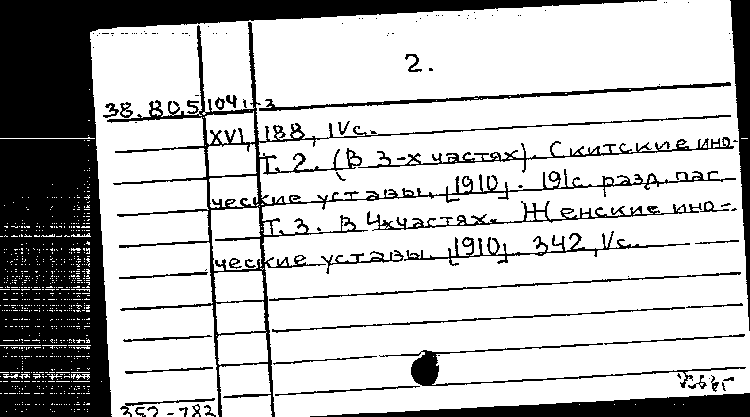 2.
38.80.5.104 1-3
XVI, 188, IV с.
Т. 2. (В 3-х частях). Скитские ино-
ческие уставы. [1910]. 191 с. разд. паг.
Т. 3. В 4х частях. Женские ино-
ческие уставы. [1910]. 342, V с.
352-782